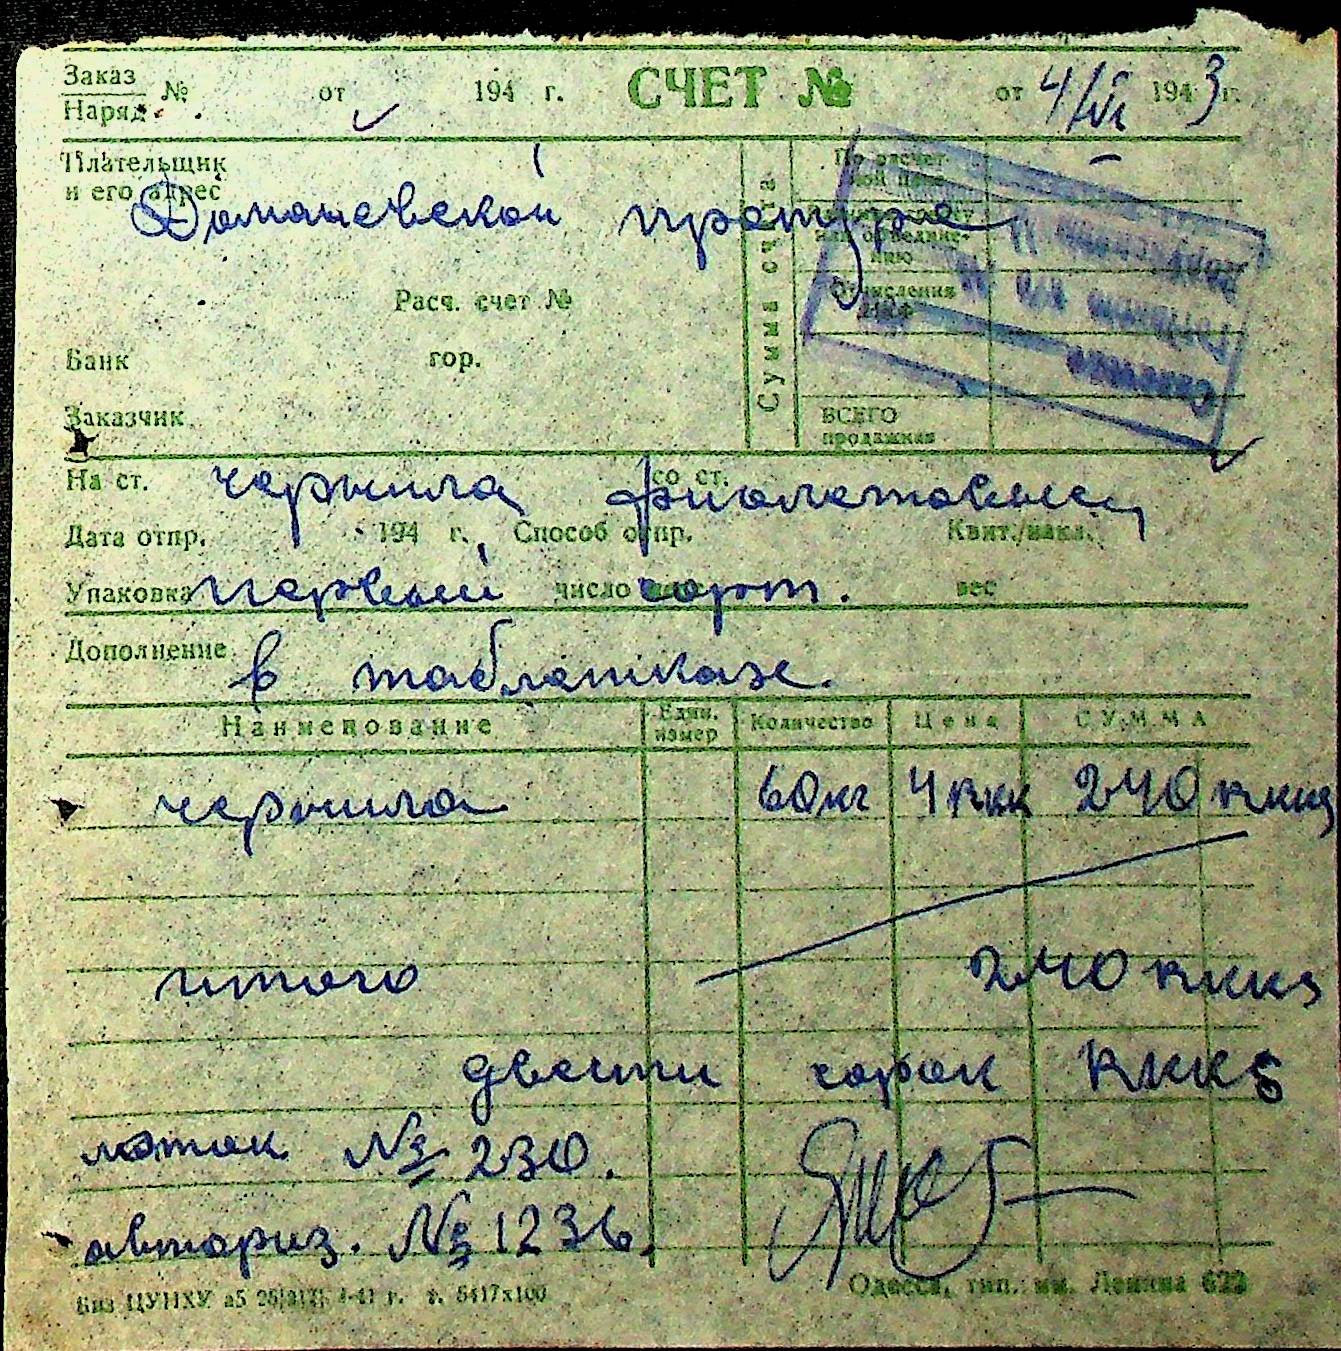 Заказ № от 194 г. СЧЕТ № от 4/VI 1943 г.
Наряд
Плательщик
и его адрес
Доманевской претуре
Расч. счет №
Банк гор.
Заказчик
Сумма счета
По расчет-
ной цене
Отчисления
ВСЕГО
продажная
На ст. со ст.
чернила фиолетовые,
Дата отпр. 194 г. Способ отпр. Квит./накл.
Упаковка число вес
первый сорт.
Дополнение
в таблетках.
Наименование Един. измер Количество Цена СУММА
чернила 60кг 4 RKK 240 RKKS
итого 240 RKKS
двести сорок RKKS
лоток № 230.
авториз. № 1236.
Биз ЦУНХУ
Одесса, тип. им. Ленина